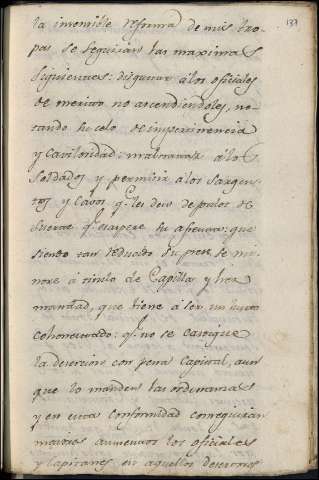 137
la invencible reforma de mis tro-
pas se seguirán las maximas
siguientes: disgustar á los oficiales
de merito no ascendiendoles, no-
tando su celo de impertinencia
y cavilosidad: maltratar á los
soldados y permitir á los sargen-
tos y cavos qe. les den de palos de
suerte qe. exaspere su : que
siendo tan reducido su pree se mi-
nore á titulo de Capilla y her-
mandad, que viene á ser un hurto
cohonestado: qe. no se castigue
la desercion con pena Capital, aun
que lo manden las ordenanzas
y en esta conformidad conseguirán
mayores aumentos los oficiales
y Capitanes en aquellos